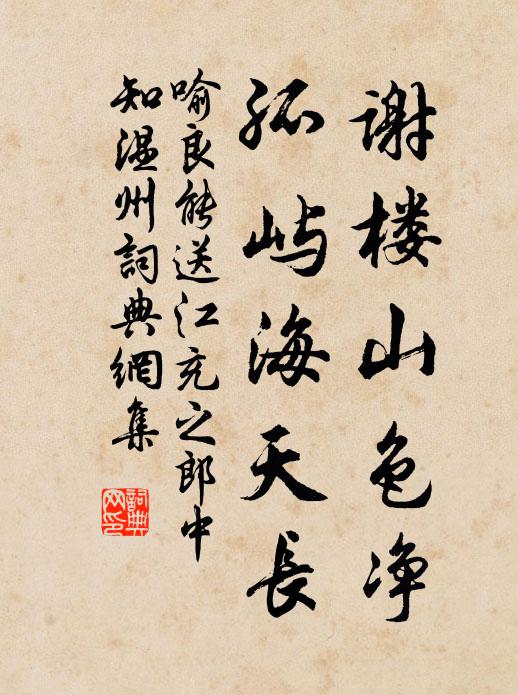 谢楼山色净
孤屿海天长
喻良能送江充之郎中
知温州詞典網集
詞典網印